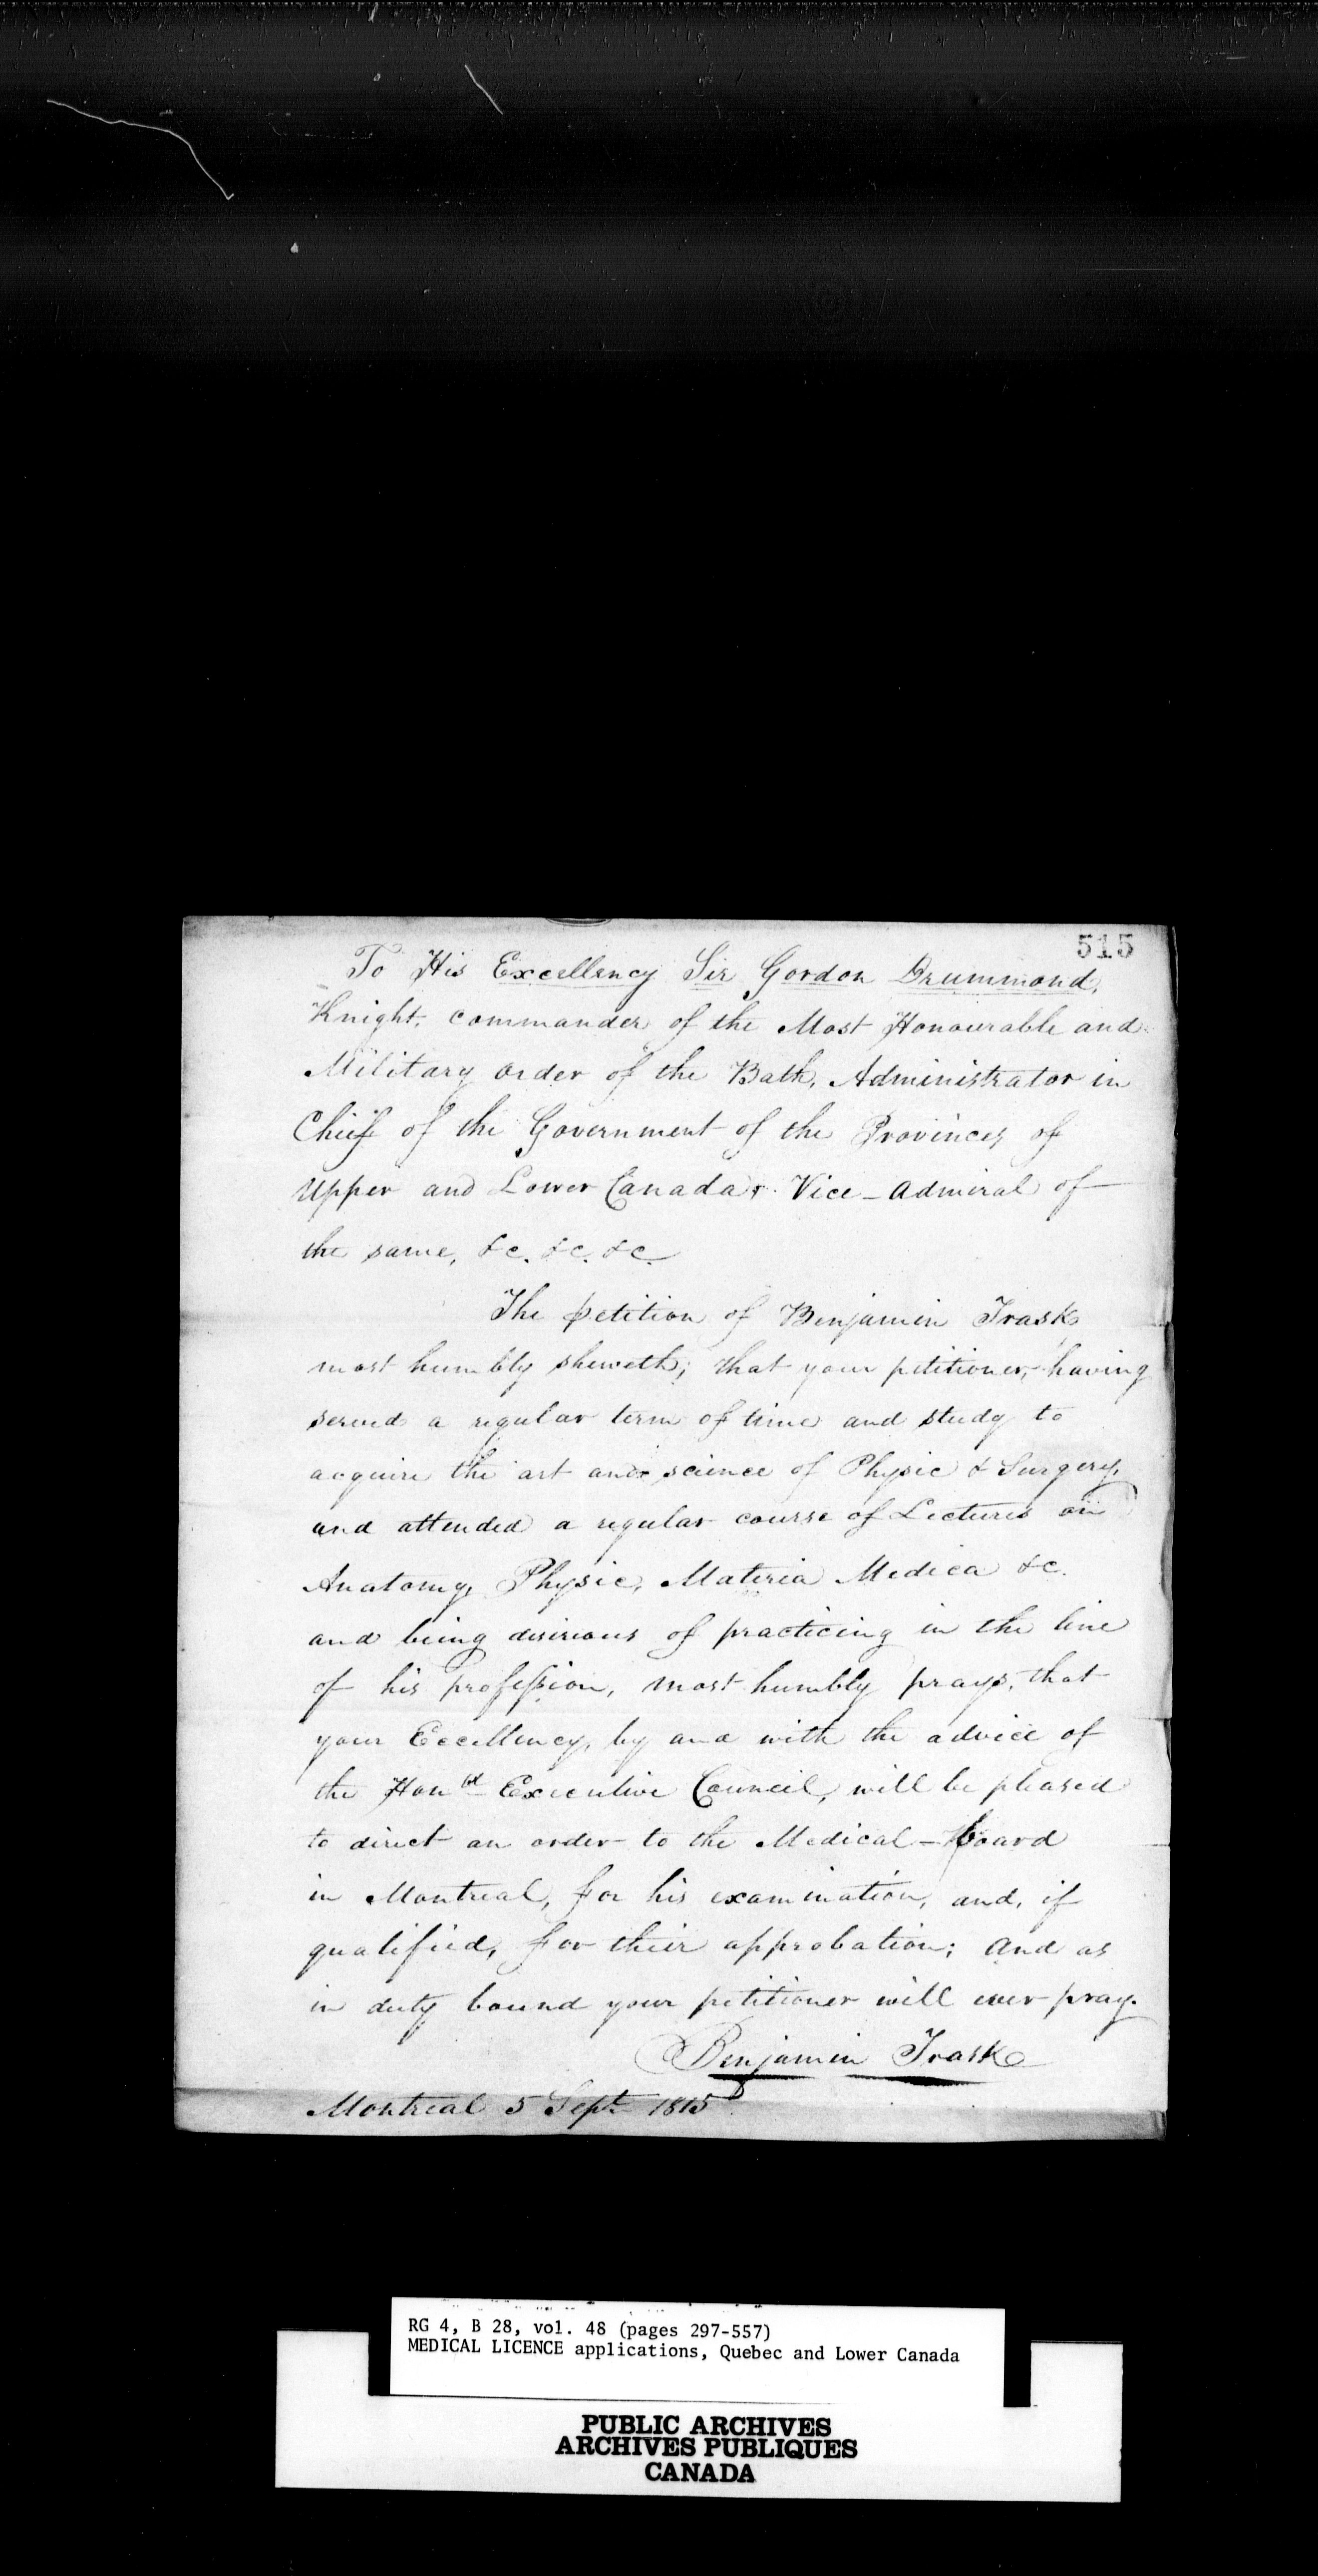 515
To His Excellency Sir Gordon Drummond,
Knight, commander of the Most Honourable and
Military order of the Bath, Administrator in
Chief of the Government of the Provinces of
Upper and Lower Canada & Vice-Admiral of
the same, &c. &c. &c.
The petition of Benjamin Trask
most humbly sheweth; that your petitioner, having
served a regular term of time and study to
acquire the art and science of Physic & Surgery,
and attended a regular course of Lectures on
Anatomy, Physic, Materia Medica &c.
and being desirous of practicing in the line
of his profession, most humbly prays, that
your Excellency, by and with the advice of
the Honbl Executive Council, will be pleased
to direct an order to the Medical-board
in Montreal, for his examination, and, if
qualified, for their approbation; And as
in duty bound your petitioner will ever pray.
Benjamin Trask
Montreal 5 Sept 1815
RG 4, B 28, vol. 48 (pages 297-557)
MEDICAL LICENCE applications, Quebec and Lower Canada
PUBLIC ARCHIVES
ARCHIVES PUBLIQUES
CANADA